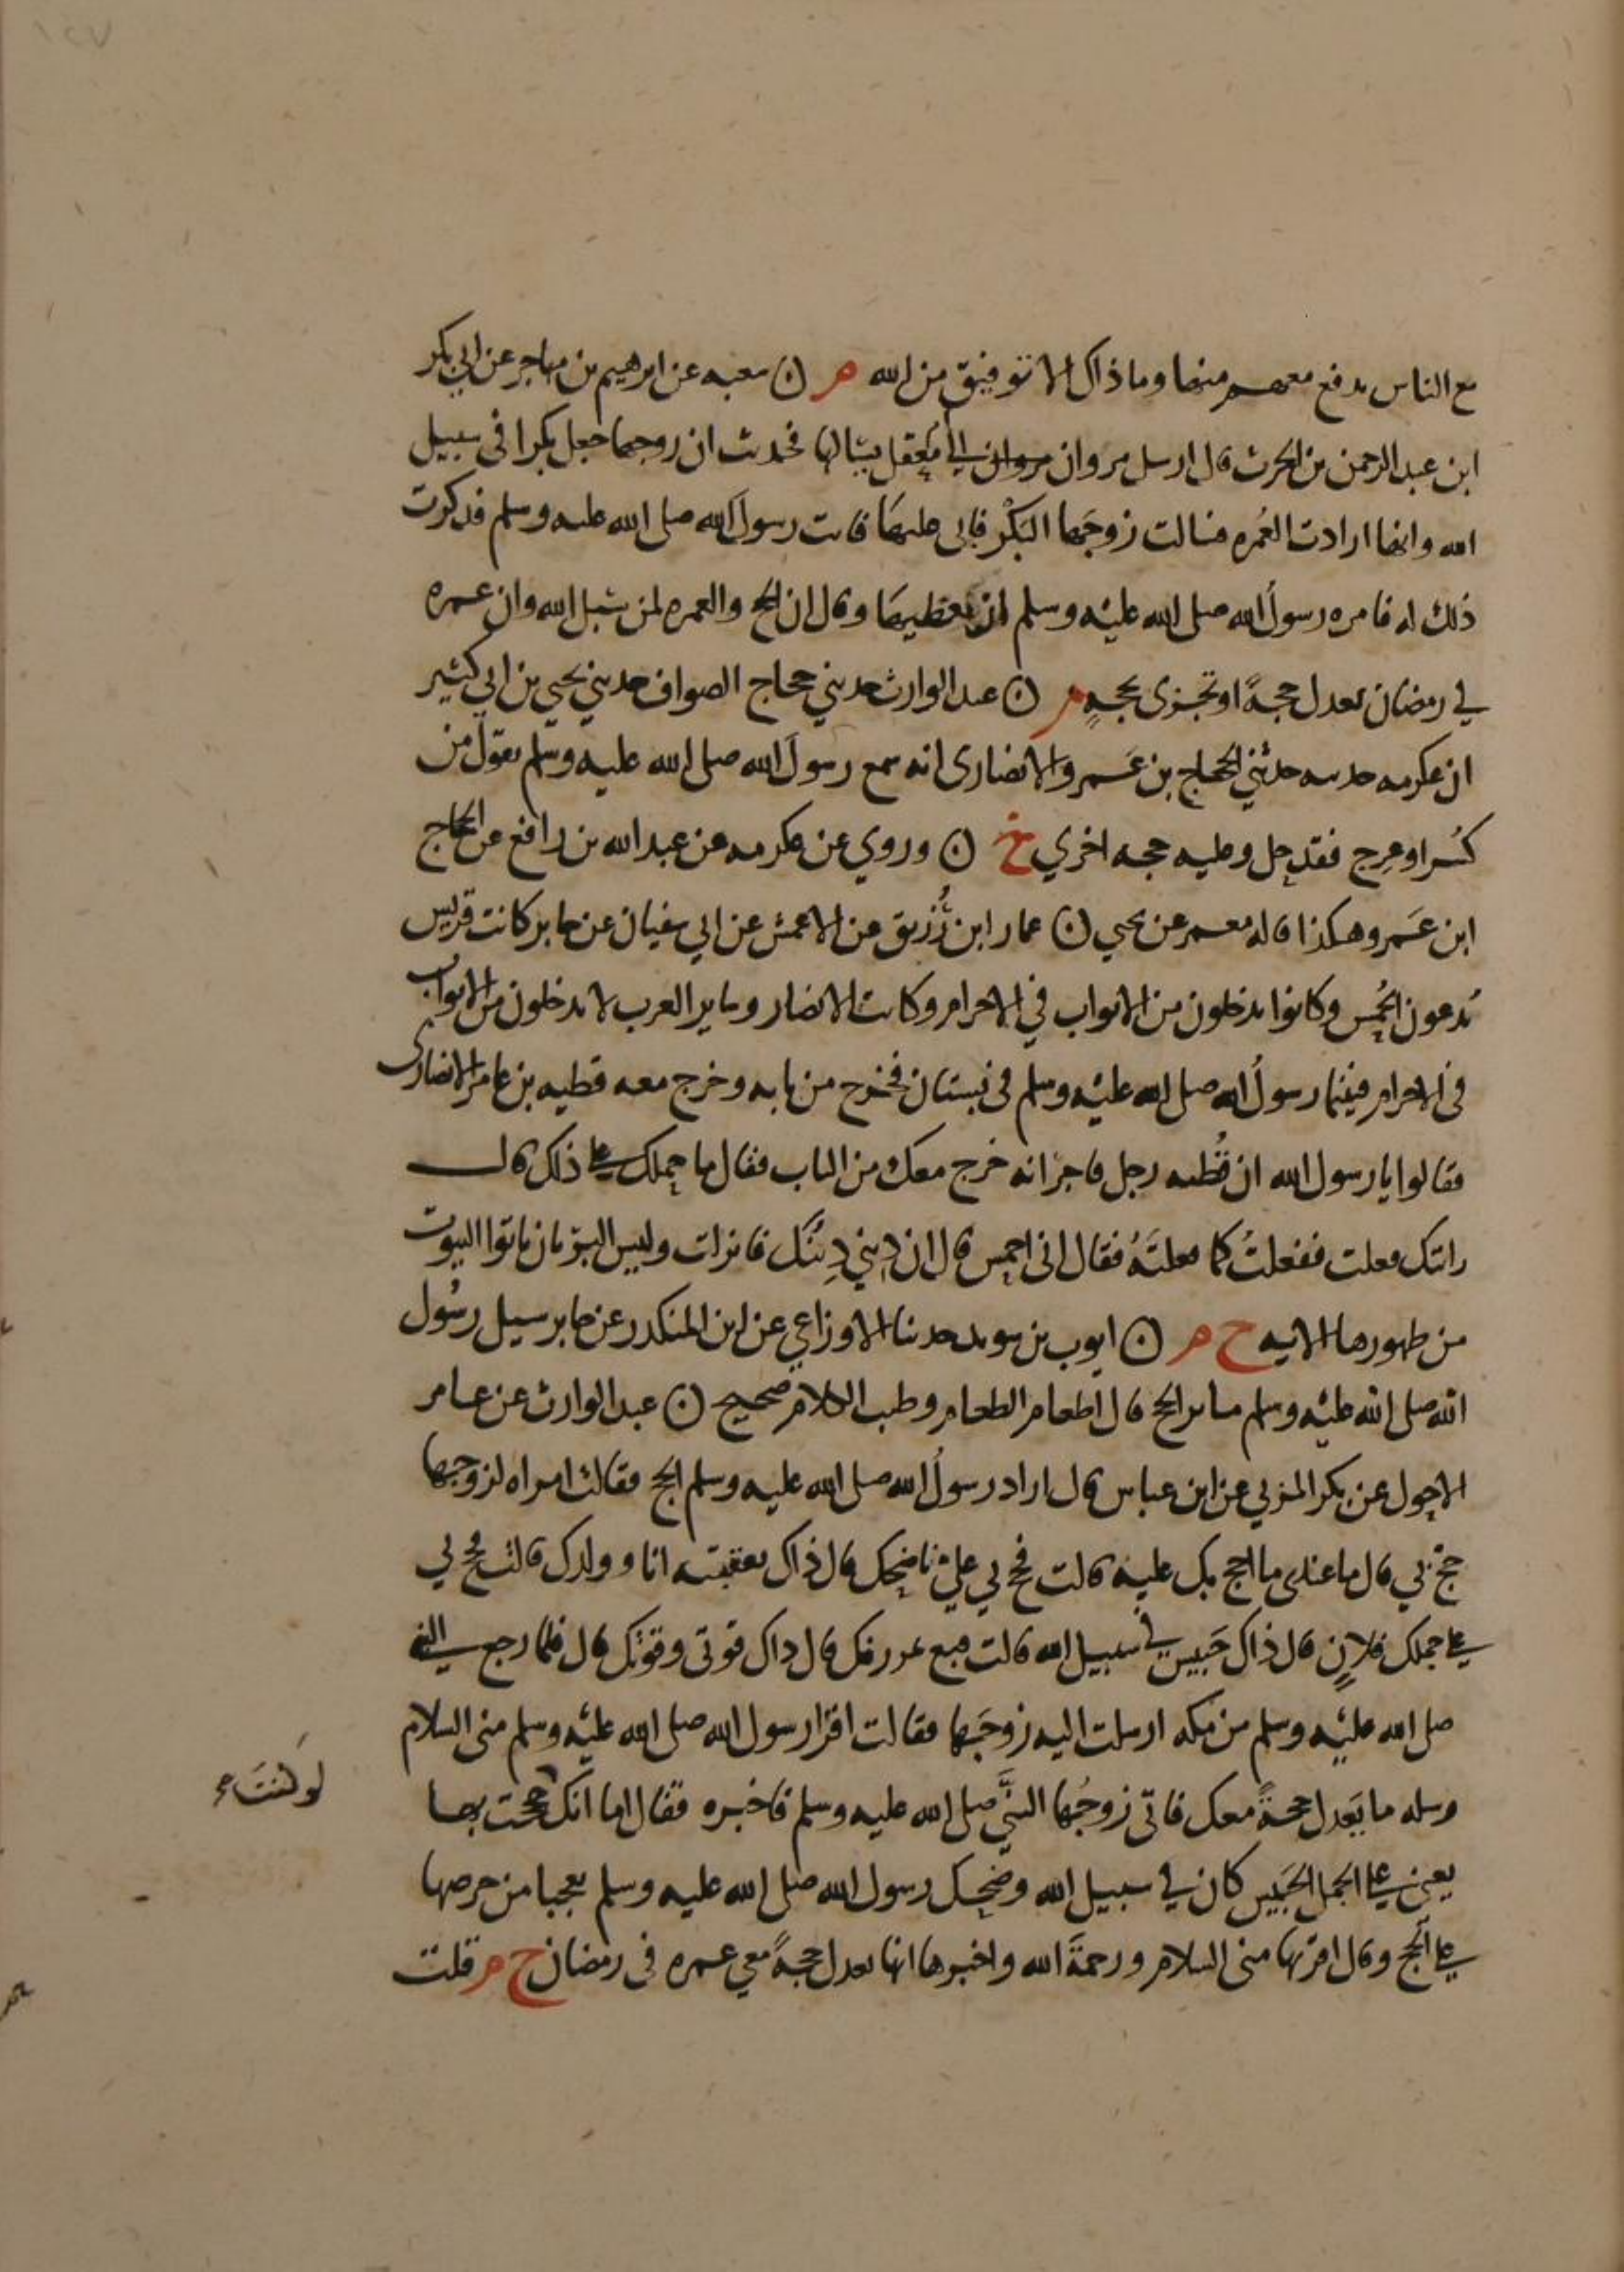 ١٢٧
مع الناس يدفع معهم منها وما ذاك الا توفيق من الله م ن شعبه عن ابرهيم بن مهاجر عن ابي بكر
ابن عبد الرحمن بن الحرث قال ارسل مروان مروان الي ام معقل يسالها فحدثت ان زوجها جعل بكرا في سبيل
الله وانها ارادت العُمره فسالت زوجَها البَكْر فابى عليها فاتت رسولَ الله صلى الله عليه وسلم فذكرت
ذلك له فامره رسولُ الله صلى الله عليْه وسلم ان يعطيها وقال ان الحج والعمره لمن سبل الله وان عمره
في رمضان تعدل حجةً او تجزى بحجهٍ م ن عبد الوارث حدثني حجاج الصواف حدثني يحيى بن ابي كثير
ان عكرمه حدثه حدثني الحجاج بن عَمرو الانصارى انه سمع رسولَ الله صلى الله عليه وسلم يقول من
كُسر او عرِج فقد حل وعليه حجه اخري خ ن وروي عن عكرمه عن عبد الله بن رافع عن الحجاج
ابن عَمرو هكذا قاله معمر عن يحيي ن عمار ابن رُزيق عن الاعمش عن ابي سفيان عن جابر كانت قريش
تُدعون الحُمس وكانوا يدخلون من الابواب في الاحرام وكانت الانصار وساير العرب لا يدخلون من الابواب
في الاحرام فبينما رسولُ الله صلى الله عليْه وسلم في بستان فخرج من بابه وخرج معه قطبه بن عامر الانصارى
فقالوا يا رسول الله ان قُطبه رجل فاجر انه خرج معك من الباب فقال ما حملك على ذلك قال
رايتك فعلت ففعلتُ كما فعلتَهُ فقال انى احمس قال ان دِيني دِينُك فانزلت وليس البر بان تاتوا البيوت
من ظهورها الايه ح م ن ايوب بن سويد حدثنا الاوزاعي عن ابن المنكدر عن جابر سيل رسُول
الله صلى الله عليْه وسلم ما بر الحج قال اطعام الطعام وطيب الكلام صحيح ن عبد الوارث عن عامر
الاحول عن بكر المزني عن ابن عباس قال اراد رسولُ الله صلى الله عليه وسلم الحج فقالت امراه لزوجها
حجّ بي قال ما عندى ما احج بك عليه قالت فحج بي على ناضحك قال ذاك نعتقبه انا وولدك قالت فحج بي
على جملك فلانٍ قال ذاك حَبيس في سبيل الله قالت فبع تمر رفك قال داك قوتى وقوتك قال فلما رجع النبي
صلى الله عليْه وسلم من مكه ارسلت اليه زوجَها فقالت اقرا رسول الله صلى الله عليْه وسلم منى السلام
وسله ما يَعدل حجةً معك فاتى زوجُها النبيَّ صلى الله عليه وسلم فاخبره فقال اما انك حججت بها
لو كنتَ
يعني على الجمل الحَبيس كان في سبيل الله وضحك رسول الله صلى الله عليه وسلم تعجبا من حرصها
على الحج وقال اقرئها منى السلام ورحمةَ الله واخبرها انها تعدل حجةً معي عمره في رمضان ح م قلت